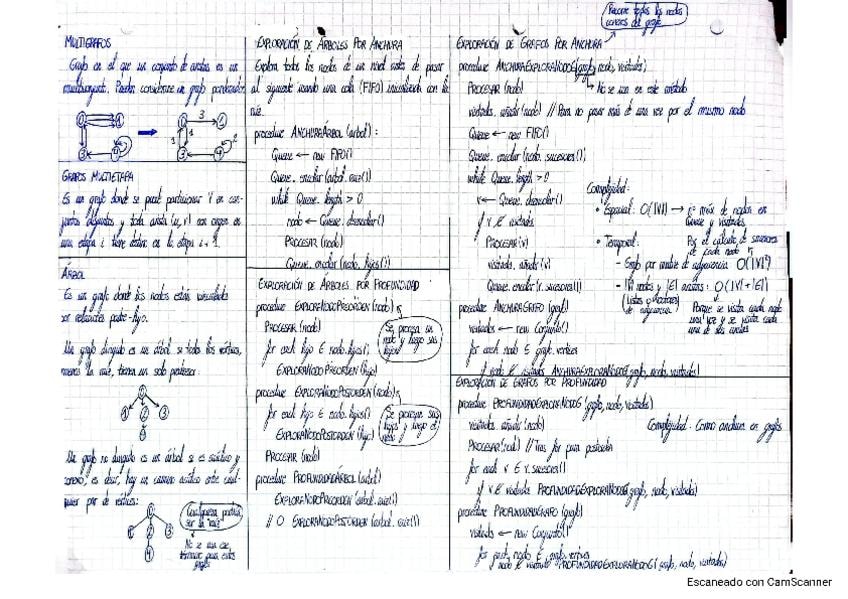 MULTIGRAFOS
Grafo en el que un conjunto de aristas es un
multiconjunto. Puede considerarse un grafo ponderado.
3
1
1
2
GRAFOS MULTIETAPA
Es un grafo donde se puede particionar V en con-
juntos disjuntos y toda arista (u,v) con origen en
una etapa i tiene destino en la etapa i+1.
ÁRBOL
Es un grafo donde los nodos están
por relaciones padre-hijo.
Un grafo dirigido es un árbol si todos los vértices,
menos la raíz, tienen un solo predecesor:
Un grafo no dirigido es un árbol si es acíclico y
conexo, es decir, hay un camino entre cual-
quier par de vértices:
Cualquiera podría
ser la "raíz"
No se usa ese
término para estos
grafos
EXPLORACIÓN DE ÁRBOLES POR ANCHURA
Explora todos los nodos de un nivel antes de pasar
al siguiente usando una cola (FIFO) inicializada con la
raíz.
procedure ANCHURAÁRBOL (arbol):
Queue ← new FIFO()
Queue.encolar (arbol.raiz())
while Queue.length > 0
nodo ← Queue.desencolar()
PROCESAR (nodo)
Queue.encolar (nodo.hijos())
EXPLORACIÓN DE ÁRBOLES POR PROFUNDIDAD
procedure EXPLORANODOPREORDEN (nodo)
PROCESAR (nodo)
for each hijo ∈ nodo.hijos()
EXPLORANODOPREORDEN (hijo)
Se procesa un
nodo y luego sus
hijos
procedure EXPLORANODOPOSTORDEN (nodo)
for each hijo ∈ nodo.hijos()
EXPLORANODOPOSTORDEN (hijo)
PROCESAR (nodo)
Se procesan sus
hijos y luego el
nodo
procedure PROFUNDIDADÁRBOL (arbol)
EXPLORANODOPREORDEN (arbol.raiz())
// O EXPLORANODOPOSTORDEN (arbol.raiz())
Recorre todos los nodos
conexos del grafo
EXPLORACIÓN DE GRAFOS POR ANCHURA
procedure ANCHURAEXPLORANODOG (grafo, nodo, visitados)
PROCESAR (nodo)
No se usa en este método
visitados.añadir (nodo) // Para no pasar más de una vez por el mismo nodo
Queue ← new FIFO()
Queue.encolar (nodo.sucesores())
while Queue.length > 0
v ← Queue.desencolar()
if v ∉ visitados
PROCESAR (v)
visitados.añadir (v)
Queue.encolar (v.sucesores())
Complejidad:
• Espacial: O(|V|) → nº máx de nodos en
Queue y visitados
• Temporal: Por el cálculo de sucesores
de cada nodo
- Grafo por matriz de adyacencia: O(|V|²)
- |V| nodos y |E| aristas: O(|V|+|E|)
(listas y
de adyacencia)
Porque se visita cada nodo
una vez y se visita cada
una de sus aristas
procedure ANCHURAGRAFO (grafo)
visitados ← new Conjunto()
for each nodo ∈ grafo.vertices
if nodo ∉ visitados ANCHURAEXPLORANODOG (grafo, nodo, visitados)
EXPLORACIÓN DE GRAFOS POR PROFUNDIDAD
procedure PROFUNDIDADEXPLORANODOG (grafo, nodo, visitados)
visitados.añadir (nodo)
Complejidad: Como anchura en grafos
PROCESAR (nodo) // Tras for para postorden
for each v ∈ v.sucesores()
if v ∉ visitados PROFUNDIDADEXPLORANODOG (grafo, nodo, visitados)
procedure PROFUNDIDADGRAFO (grafo)
visitados ← new Conjunto()
for each nodo ∈ grafo.vertices
nodo ∉ visitados PROFUNDIDADEXPLORANODOG (grafo, nodo, visitados)
Escaneado con CamScanner